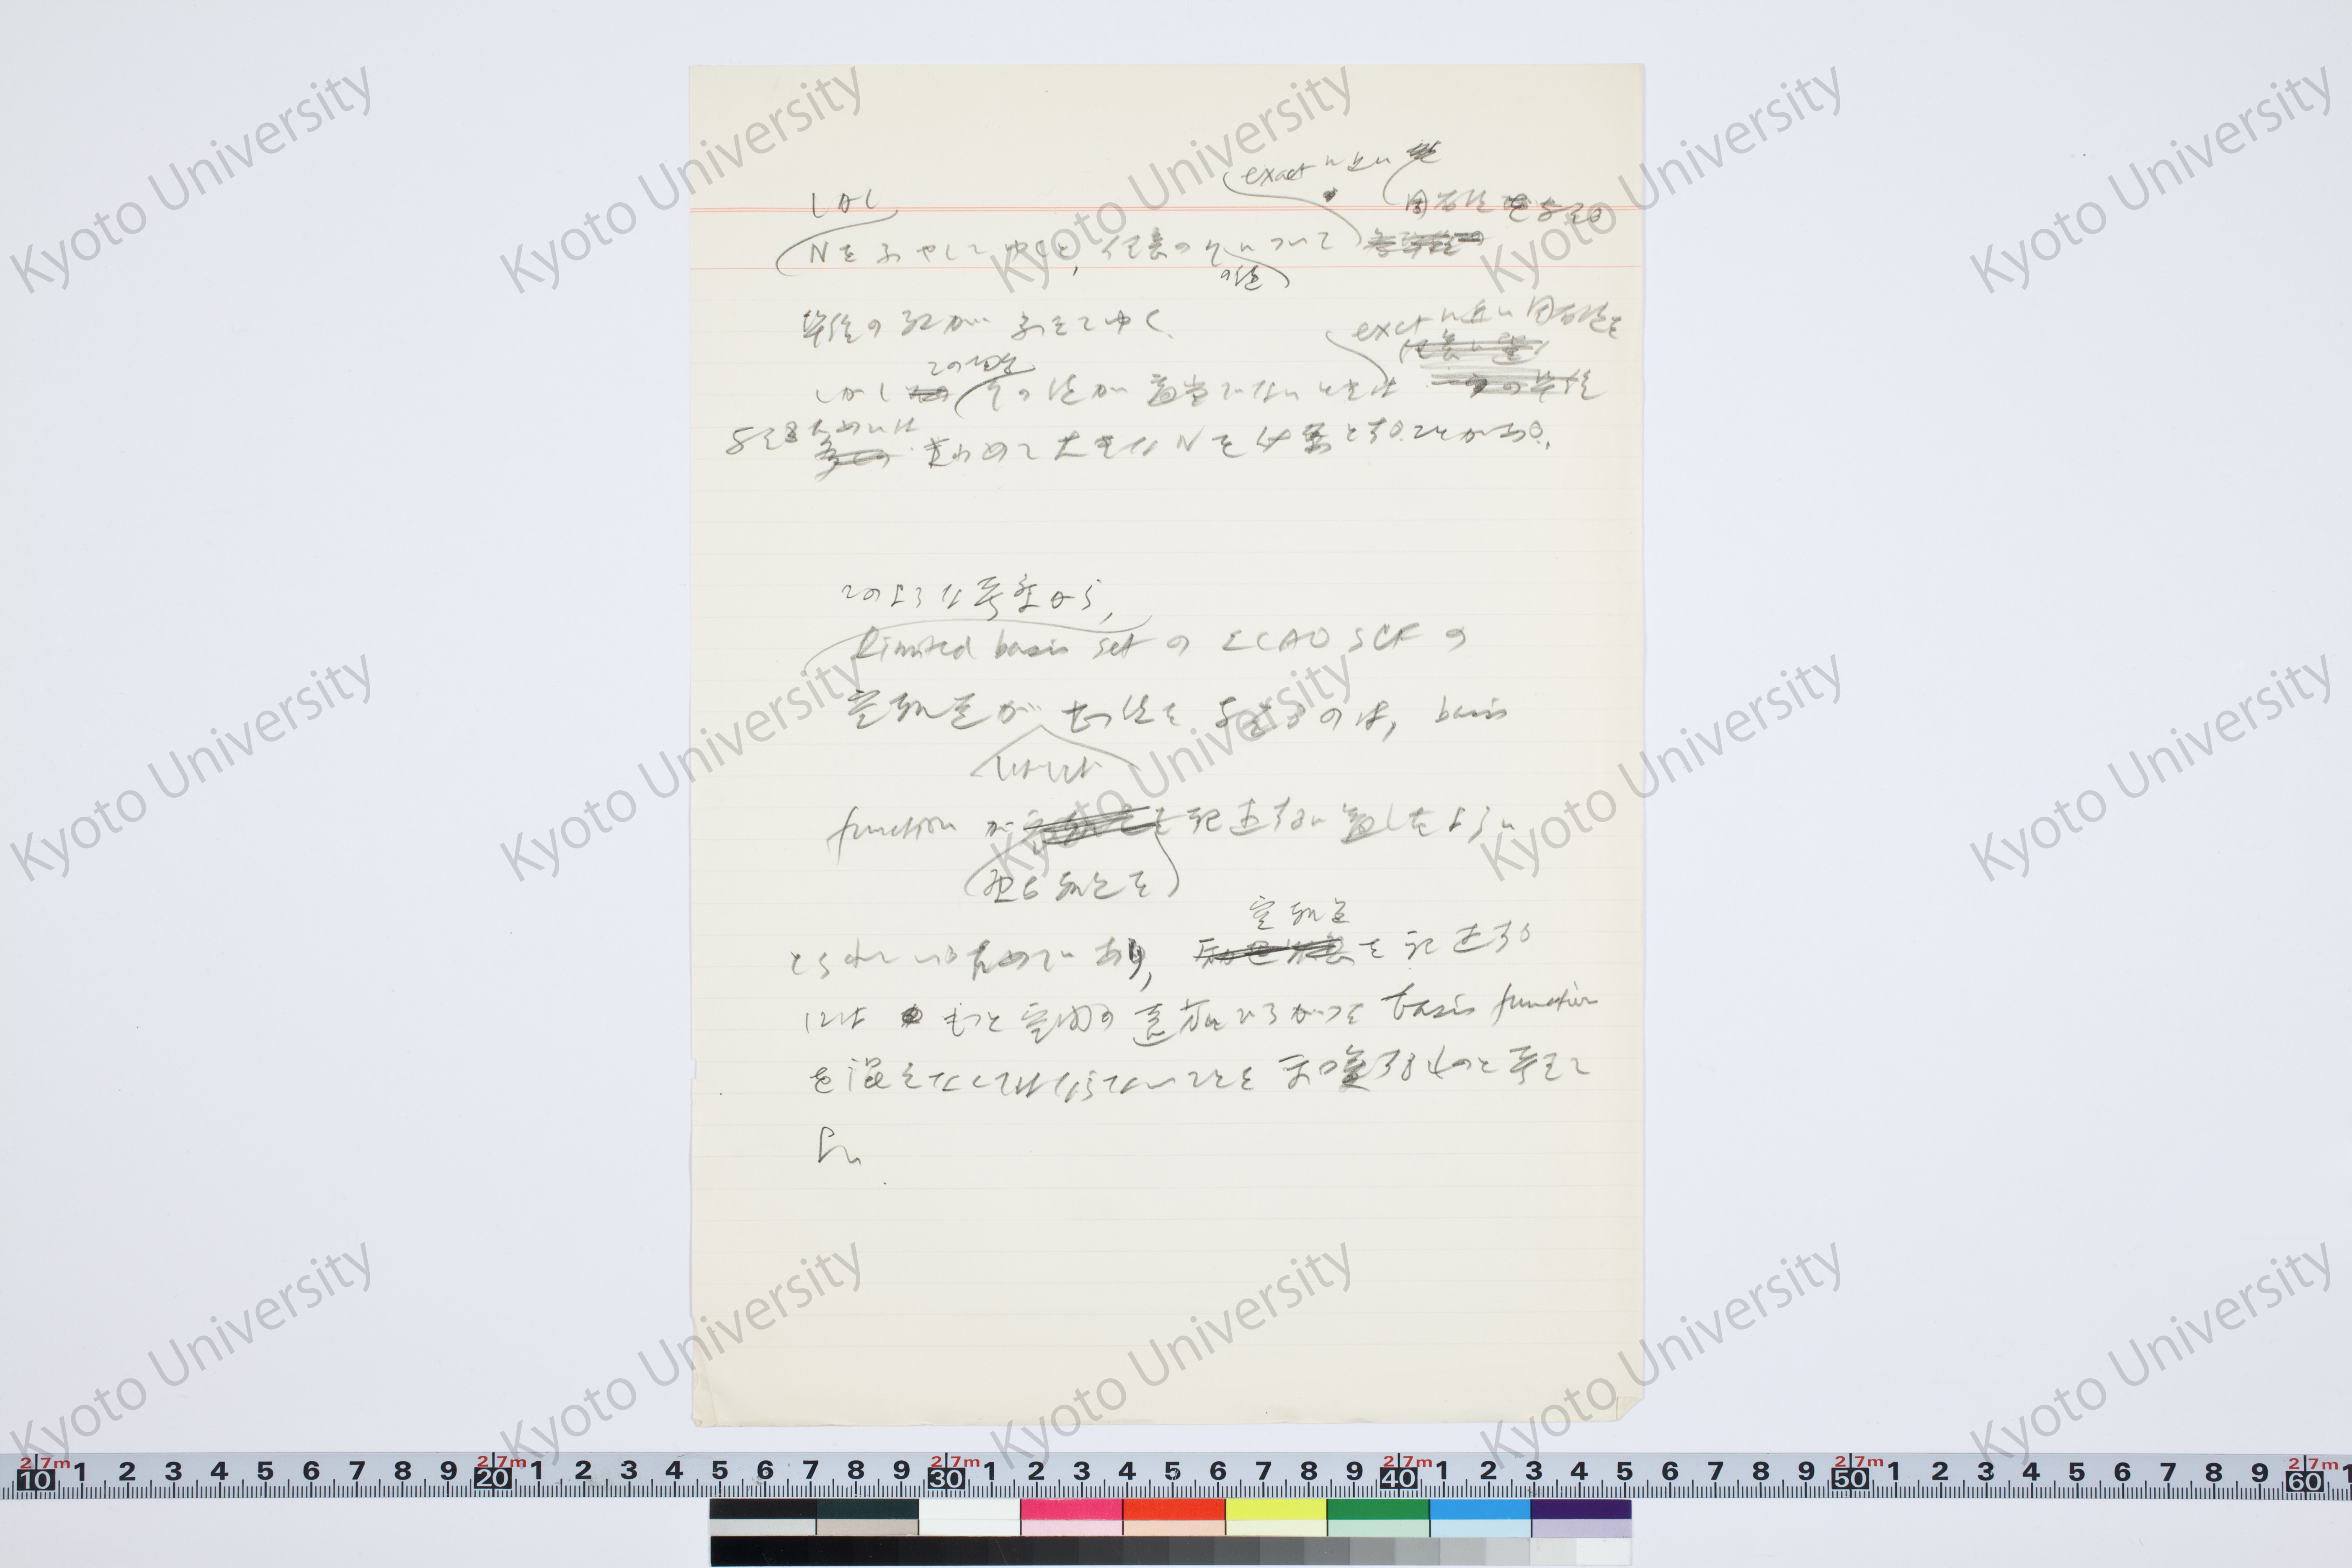 しかし
exact に近い
固有値を与える
Nをふやしてゆくと, 任意の	について
の値
準位の数がふえてゆく
exact に近い固有値を
この場合
しかし その値が適当でないときは
与えるためには 極めて大きな N を必要とすることがある.
このような考察から,
limited basis set の LCAO SCF の
空軌道が 値を与えるのは, basis
しばしば
function が を記述するに適したように
被占軌道を
空軌道
とられているためであり, を記述する
には もっと空間の遠方にひろがった basis function
を混ぜなくてはならないことを示唆するものと考えて
よい
Kyoto University
2.7m 10 1 2 3 4 5 6 7 8 9 2.7m 20 1 2 3 4 5 6 7 8 9 2.7m 30 1 2 3 4 5 6 7 8 9 2.7m 40 1 2 3 4 5 6 7 8 9 2.7m 50 1 2 3 4 5 6 7 8 9 2.7m 60 1